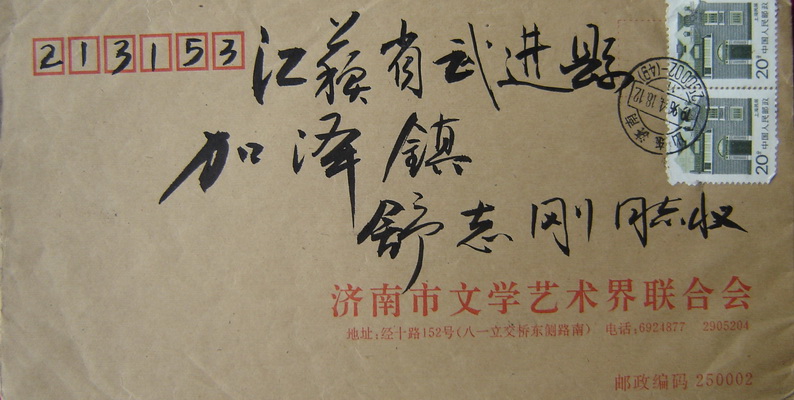 213153 江蘇省武进縣
加泽鎮
舒志刚同志收
济南市文学艺术界联合会
地址:经十路152号(八一立交桥东侧路南) 电话:6924877 2905204
邮政编码 250002
20分 中国人民邮政
20分 中国人民邮政
250002-(49)
济南